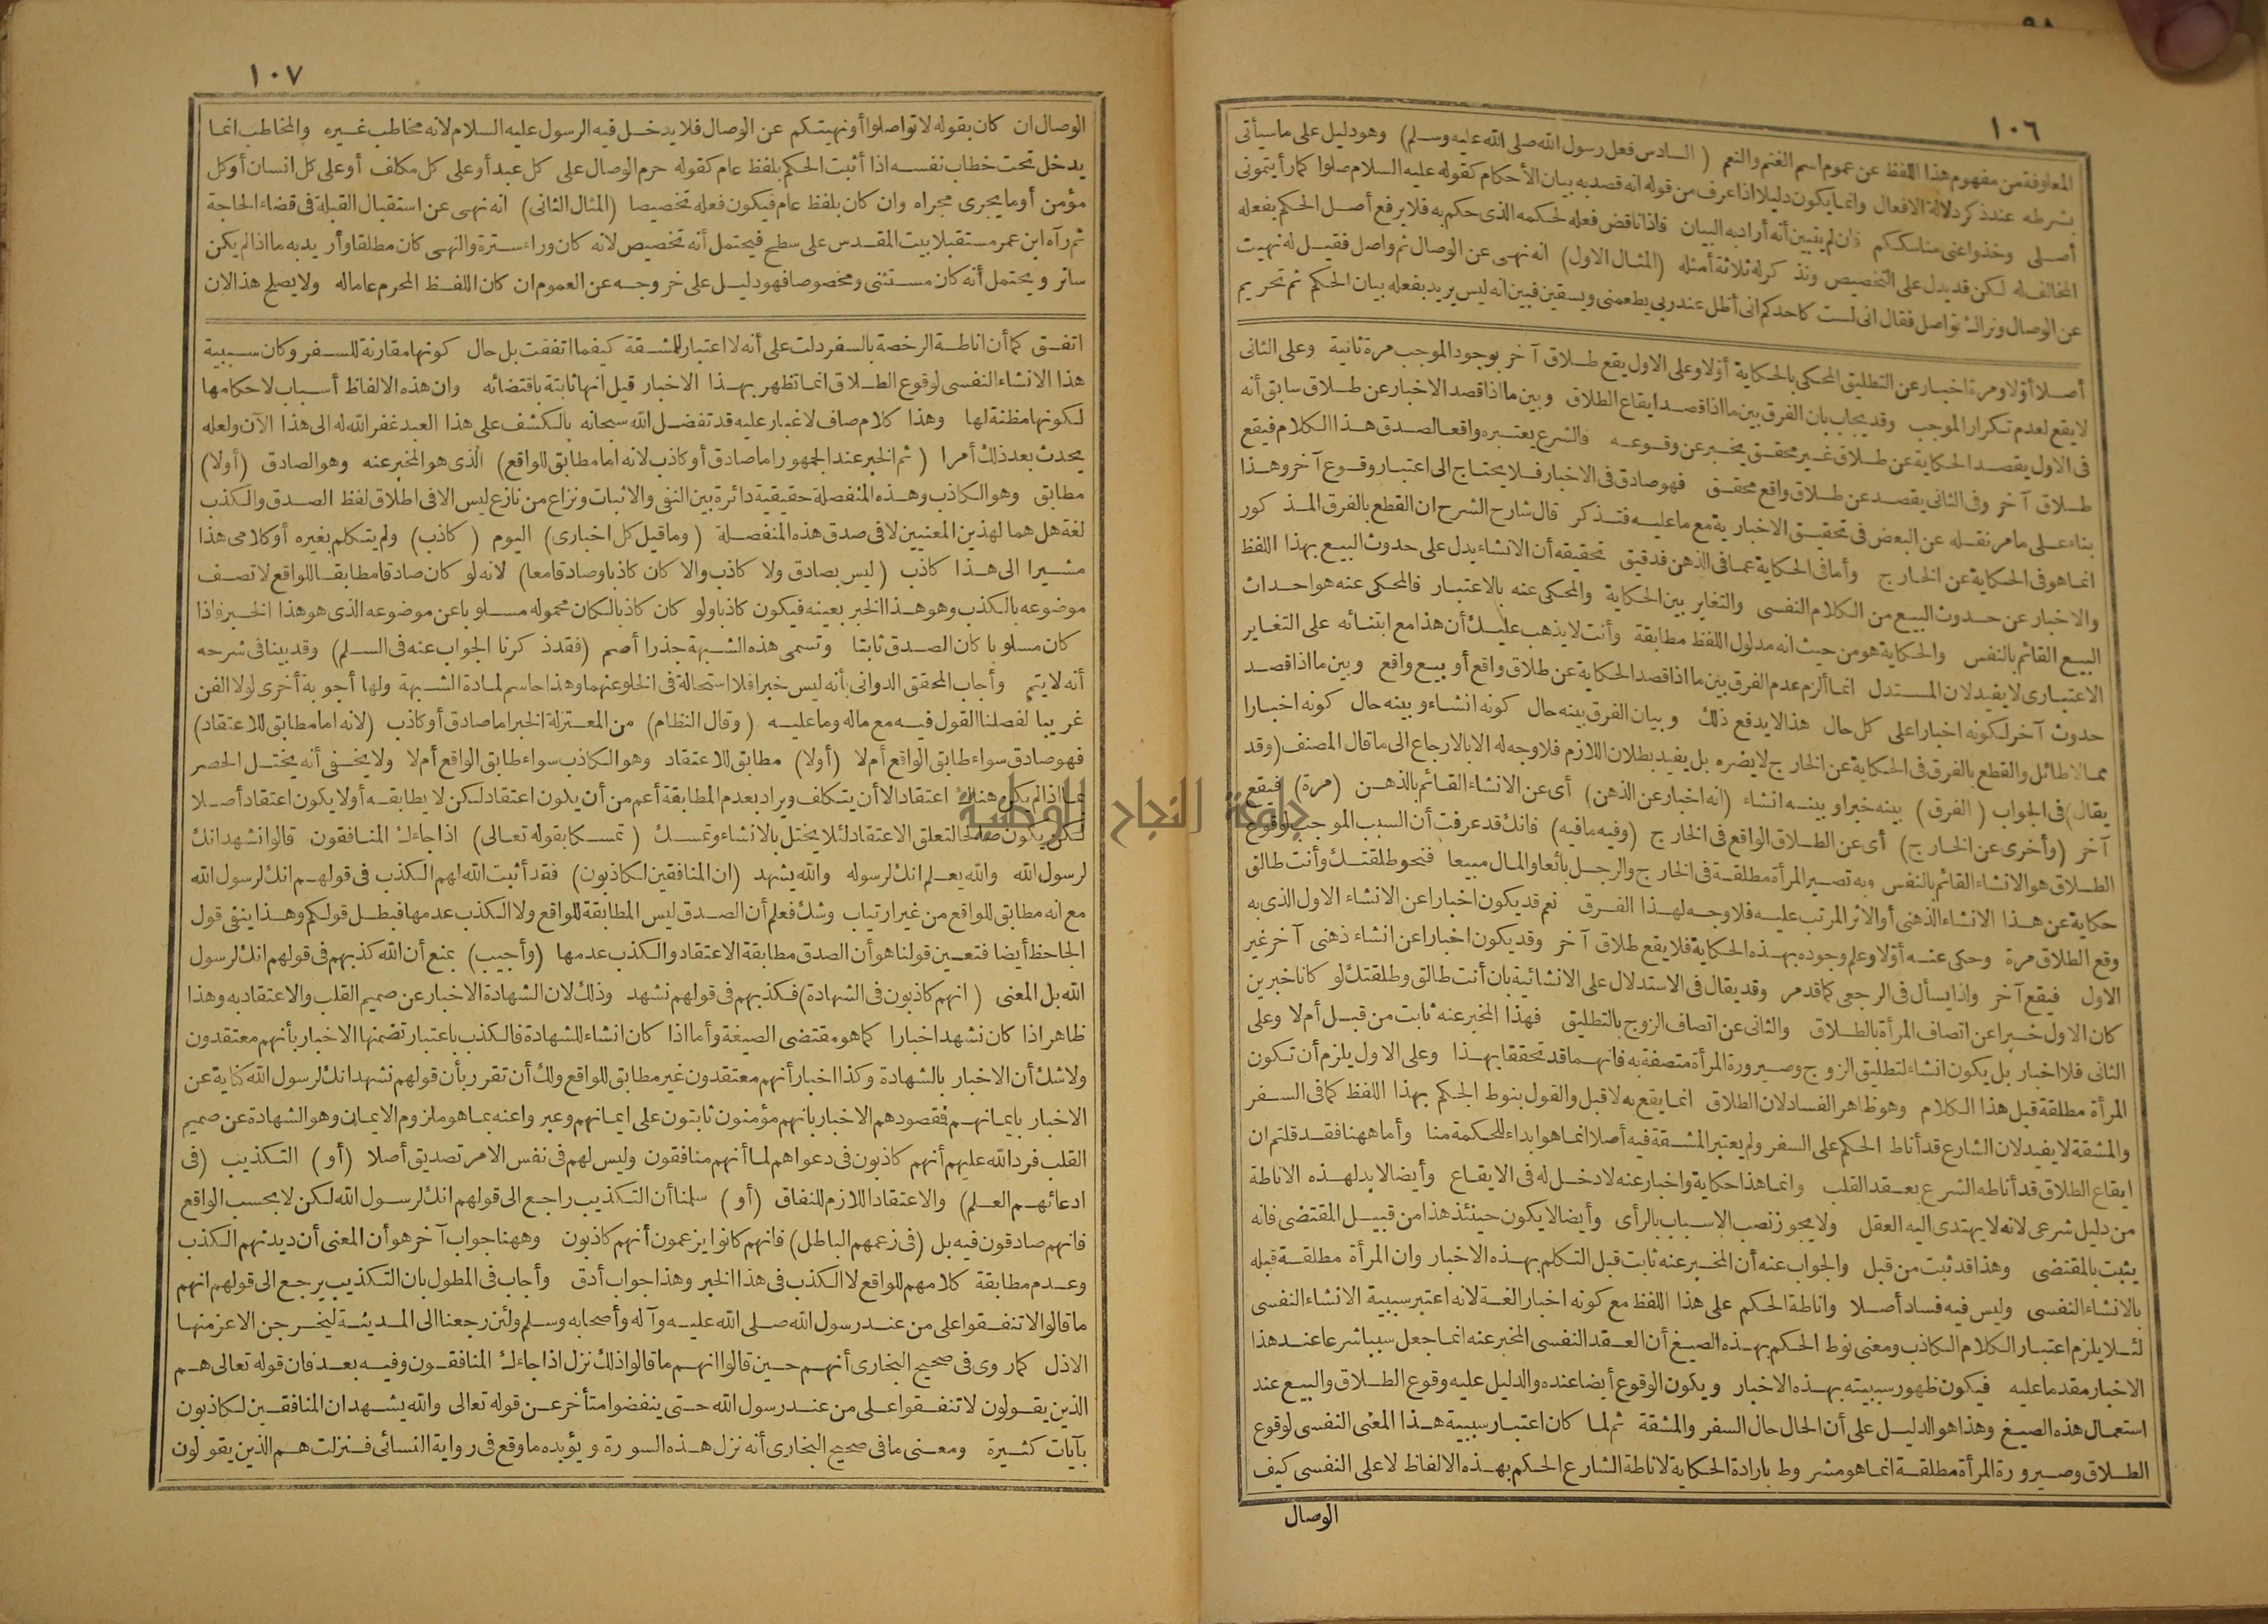 ١٠٦
المعلوفة من مفهوم هذا اللفظ عن عموم اسم الغنم والنعم ( السادس فعل رسول الله صلى الله عليه وسلم) وهو دليل على ما سيأتى
بشرطه عند ذكر دلالة الافعال وانما يكون دليلا اذا عرف من قوله انه قصد به بيان الأحكام كقوله عليه السلام صلوا كما رأيتمونى
أصلى وخذوا عنى مناسككم فان لم يتبين أنه أراد به البيان فاذا ناقض فعله لحكمه الذى حكم به فلا يرفع أصل الحكم بفعله
المخالف له لكن قد يدل على التخصيص ونذكر له ثلاثة أمثلة (المثال الاول) انه نهى عن الوصال ثم واصل فقيل له نهيت
عن الوصال ونراك تواصل فقال انى لست كاحدكم انى أظل عند ربى يطعمنى ويسقين فبين انه ليس يريد بفعله بيان الحكم ثم تحريم
أصلا أولا ومرة اخبار عن التطليق المحكى بالحكاية أولا وعلى الاول يقع طلاق آخر بوجود الموجب مرة ثانية وعلى الثانى
لا يقع لعدم تكرار الموجب وقد يجاب بان الفرق بين ما اذا قصد ايقاع الطلاق وبين ما اذا قصد الاخبار عن طلاق سابق أنه
فى الاول يقصد الحكاية عن طلاق غير محقق يخبر عن وقوعه فالشرع يعتبره واقعا لصدق هذا الكلام فيقع
طلاق آخر وفى الثانى يقصد عن طلاق واقع محقق فهو صادق فى الاخبار فلا يحتاج الى اعتبار وقوع آخر وهذا
بناء على ما مر نقله عن البعض فى تحقيق الاخبارية مع ما عليه فتذكر قال شارح الشرح ان القطع بالفرق المذكور
انما هو فى الحكاية عن الخارج وأما فى الحكاية عما فى الذهن فدقيق تحقيقه أن الانشاء يدل على حدوث البيع بهذا اللفظ
والاخبار عن حدوث البيع من الكلام النفسى والتغاير بين الحكاية والمحكى عنه بالاعتبار فالمحكى عنه هو احداث
البيع القائم بالنفس والحكاية هو من حيث انه مدلول اللفظ مطابقة وأنت لا يذهب عليك أن هذا مع ابتنائه على التغاير
الاعتبارى لا يفيد لان المستدل انما ألزم عدم الفرق بين ما اذا قصد الحكاية عن طلاق واقع أو بيع واقع وبين ما اذا قصد
حدوث آخر لكونه اخبارا على كل حال هذا لا يدفع ذلك وبيان الفرق بينه حال كونه انشاء وبينه حال كونه اخبارا
مما لا طائل والقطع بالفرق فى الحكاية عن الخارج لا يضره بل يفيد بطلان اللازم فلا وجه له الا بالارجاع الى ما قال المصنف (وقد
يقال) فى الجواب (الفرق) بينه خبرا وبينه انشاء (انه اخبار عن الذهن) أى عن الانشاء القائم بالذهن (مرة) فيقع
آخر (وأخرى عن الخارج) أى عن الطلاق الواقع فى الخارج (وفيه ما فيه) فانك قد عرفت أن السبب الموجب لوقوع
الطلاق هو الانشاء القائم بالنفس وبه تصير المرأة مطلقة فى الخارج والرجل بائعا والمال مبيعا فنحو طلقتك وأنت طالق
حكاية عن هذا الانشاء الذهنى أو الأثر المرتب عليه فلا وجه لهذا الفرق نعم قد يكون اخبارا عن الانشاء الاول الذى به
وقع الطلاق مرة وحكى عنه أولا وعلم وجوده بهذه الحكاية فلا يقع طلاق آخر وقد يكون اخبارا عن انشاء ذهنى آخر غير
الاول فيقع آخر ولذا يسأل فى الرجعى كما قد مر وقد يقال فى الاستدلال على الانشائية بان أنت طالق وطلقتك لو كانا خبرين
كان الاول خبرا عن اتصاف المرأة بالطلاق والثانى عن اتصاف الزوج بالتطليق فهذا المخبر عنه ثابت من قبل أم لا وعلى
الثانى فلا اخبار بل يكون انشاء لتطليق الزوج وصيرورة المرأة متصفة به فانهما قد تحققا بهذا وعلى الاول يلزم أن تكون
المرأة مطلقة قبل هذا الكلام وهو ظاهر الفساد لان الطلاق انما يقع به لا قبل والقول بنوط الحكم بهذا اللفظ كما فى السفر
والمشقة لا يفيد لان الشارع قد أناط الحكم على السفر ولم يعتبر المشقة فيه أصلا انما هو ابداء للحكمة منا وأما ههنا فقد قلتم ان
ايقاع الطلاق قد أناطه الشرع بعقد القلب وانما هذا حكاية واخبار عنه لا دخل له فى الايقاع وأيضا لا بد لهذه الاناطة
من دليل شرعى لانه لا يهتدى اليه العقل ولا يجوز نصب الاسباب بالرأى وأيضا لا يكون حينئذ هذا من قبيل المقتضى فانه
يثبت بالمقتضى وهذا قد ثبت من قبل والجواب عنه أن المخبر عنه ثابت قبل التكلم بهذه الاخبار وان المرأة مطلقة قبله
بالانشاء النفسى وليس فيه فساد أصلا واناطة الحكم على هذا اللفظ مع كونه اخبارا لغة لانه اعتبر سببية الانشاء النفسى
لئلا يلزم اعتبار الكلام الكاذب ومعنى نوط الحكم بهذه الصيغ أن العقد النفسى المخبر عنه انما جعل سببا شرعا عند هذا
الاخبار مقدما عليه فيكون ظهور سببيته بهذه الاخبار ويكون الوقوع أيضا عنده والدليل عليه وقوع الطلاق والبيع عند
استعمال هذه الصيغ وهذا هو الدليل على أن الحال حال السفر والمشقة ثم لما كان اعتبار سببية هذا المعنى النفسى لوقوع
الطلاق وصيرورة المرأة مطلقة انما هو مشروط بارادة الحكاية لاناطة الشارع الحكم بهذه الالفاظ لا على النفسى كيف
الوصال
١٠٧
الوصال ان كان بقوله لا تواصلوا أو نهيتكم عن الوصال فلا يدخل فيه الرسول عليه السلام لانه مخاطب غيره والمخاطب انما
يدخل تحت خطاب نفسه اذا أثبت الحكم بلفظ عام كقوله حرم الوصال على كل عبد أو على كل مكلف أو على كل انسان أو كل
مؤمن أو ما يجرى مجراه وان كان بلفظ عام فيكون فعله تخصيصا (المثال الثانى) انه نهى عن استقبال القبلة فى قضاء الحاجة
ثم رآه ابن عمر مستقبلا بيت المقدس على سطح فيحتمل أنه تخصيص لانه كان وراء سترة والنهى كان مطلقا وأريد به ما اذا لم يكن
ساتر ويحتمل أنه كان مستثنى ومخصوصا فهو دليل على خروجه عن العموم ان كان اللفظ المحرم عاما له ولا يصلح هذا لان
اتفق كما أن اناطة الرخصة بالسفر دلت على أنه لا اعتبار للمشقة كيفما اتفقت بل حال كونها مقارنة للسفر وكان سببية
هذا الانشاء النفسى لوقوع الطلاق انما تظهر بهذا الاخبار قيل انها ثابتة باقتضائه وان هذه الالفاظ أسباب لاحكامها
لكونها مظنة لها وهذا كلام صاف لا غبار عليه قد تفضل الله سبحانه بالكشف على هذا العبد غفر الله له الى هذا الآن ولعله
يحدث بعد ذلك أمرا (ثم الخبر عند الجمهور اما صادق أو كاذب لانه اما مطابق للواقع) الذى هو المخبر عنه وهو الصادق (أولا)
مطابق وهو الكاذب وهذه المنفصلة حقيقية دائرة بين النفى والاثبات ونزاع من نازع ليس الا فى اطلاق لفظ الصدق والكذب
لغة هل هما لهذين المعنيين لا فى صدق هذه المنفصلة (وما قيل كل اخبارى) اليوم (كاذب) ولم يتكلم بغيره أو كلامى هذا
مشيرا الى هذا كاذب (ليس بصادق ولا كاذب والا كان كاذبا وصادقا معا) لانه لو كان صادقا مطابقا للواقع لاتصف
موضوعه بالكذب وهو هذا الخبر بعينه فيكون كاذبا ولو كان كاذبا لكان محموله مسلوبا عن موضوعه الذى هو هذا الخبر فاذا
كان مسلوبا كان الصدق ثابتا وتسمى هذه الشبهة جذرا أصم (فقد ذكرنا الجواب عنه فى السلم) وقد بينا فى شرحه
أنه لا يتم وأجاب المحقق الدوانى بأنه ليس خبرا فلا استحالة فى الخلو عنهما وهذا حاسم لمادة الشبهة ولها أجوبة أخرى لولا الفن
غريبا لفصلنا القول فيه مع ماله وما عليه (وقال النظام) من المعتزلة الخبر اما صادق أو كاذب (لانه اما مطابق للاعتقاد)
فهو صادق سواء طابق الواقع أم لا (أولا) مطابق للاعتقاد وهو الكاذب سواء طابق الواقع أم لا ولا يخفى أنه يختل الحصر
بما اذا لم يكن هناك اعتقاد الا أن يتكلف ويراد بعدم المطابقة أعم من أن يكون اعتقاد لكن لا يطابقه أو لا يكون اعتقاد أصلا
لكن يكون صالحا لتعلق الاعتقاد لئلا يختل بالانشاء وتمسك (تمسكا بقوله تعالى) اذا جاءك المنافقون قالوا نشهد انك
لرسول الله والله يعلم انك لرسوله والله يشهد (ان المنافقين لكاذبون) فقد أثبت الله لهم الكذب فى قولهم انك لرسول الله
مع انه مطابق للواقع من غير ارتياب وشك فعلم أن الصدق ليس المطابقة للواقع ولا الكذب عدمها فبطل قولكم وهذا ينفى قول
الجاحظ أيضا فتعين قولنا هو أن الصدق مطابقة الاعتقاد والكذب عدمها (وأجيب) بمنع أن الله كذبهم فى قولهم انك لرسول
الله بل المعنى (انهم كاذبون فى الشهادة) فكذبهم فى قولهم نشهد وذلك لان الشهادة الاخبار عن صميم القلب والاعتقاد به وهذا
ظاهر اذا كان نشهد اخبارا كما هو مقتضى الصيغة وأما اذا كان انشاء للشهادة فالكذب باعتبار تضمنها الاخبار بأنهم معتقدون
ولا شك أن الاخبار بالشهادة وكذا اخبار أنهم معتقدون غير مطابق للواقع ولك أن تقرر بأن قولهم نشهد انك لرسول الله كناية عن
الاخبار بايمانهم فقصودهم الاخبار بانهم مؤمنون ثابتون على ايمانهم وعبروا عنه بما هو ملزوم الايمان وهو الشهادة عن صميم
القلب فرد الله عليهم أنهم كاذبون فى دعواهم لما أنهم منافقون وليس لهم فى نفس الامر تصديق أصلا (أو) التكذيب (فى
ادعائهم العلم) والاعتقاد اللازم للنفاق (أو) سلمنا أن التكذيب راجع الى قولهم انك لرسول الله لكن لا بحسب الواقع
فانهم صادقون فيه بل (فى زعمهم الباطل) فانهم كانوا يزعمون أنهم كاذبون وههنا جواب آخر هو أن المعنى أن ديدنهم الكذب
وعدم مطابقة كلامهم للواقع لا الكذب فى هذا الخبر وهذا جواب أدق وأجاب فى المطول بان التكذيب يرجع الى قولهم انهم
ما قالوا لا تنفقوا على من عند رسول الله صلى الله عليه وآله وأصحابه وسلم ولئن رجعنا الى المدينة ليخرجن الاعز منها
الاذل كما روى فى صحيح البخارى أنهم حين قالوا انهم ما قالوا ذلك نزل اذا جاءك المنافقون وفيه بعد فان قوله تعالى هم
الذين يقولون لا تنفقوا على من عند رسول الله حتى ينفضوا متأخر عن قوله تعالى والله يشهد ان المنافقين لكاذبون
بآيات كثيرة ومعنى ما فى صحيح البخارى أنه نزل هذه السورة ويؤيده ما وقع فى رواية النسائى فنزلت هم الذين يقولون
جامعة النجاح الوطنية